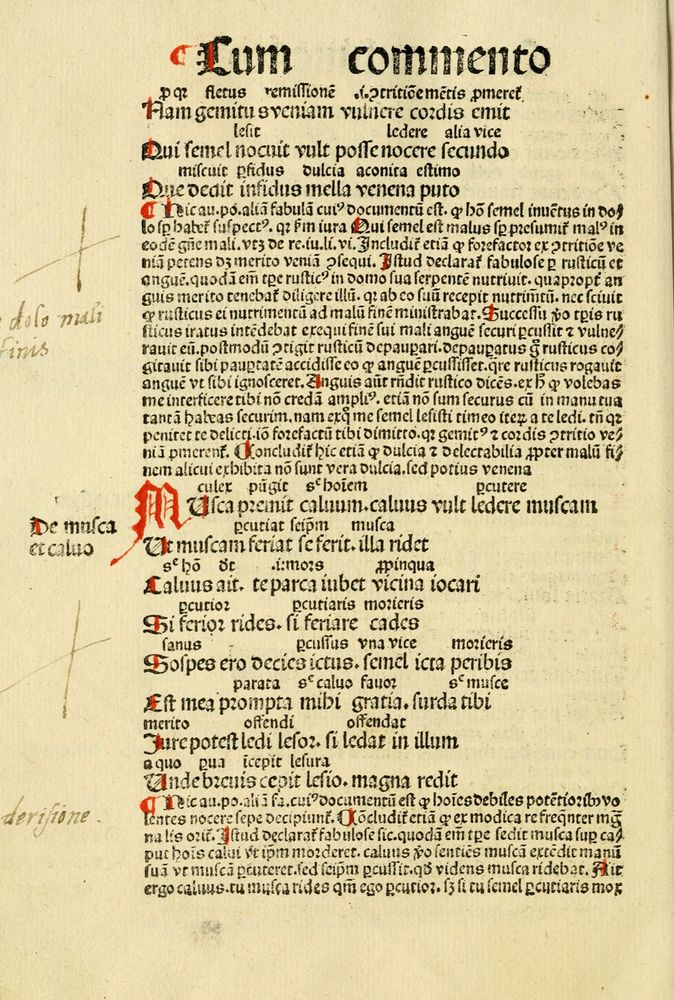 Cum commento
ꝓ qr fletus remissionē .i. ꝯtritiōne mētis ꝓmeret᷑
Nam gemitus veniam vulnere cordis emit
lesit ledere alia vice
Qui semel nocuit vult posse nocere secundo
miscuit ꝑfidus dulcia aconita estimo
Que dedit infidus mella venena puto
¶ Hic au. po. aliā fabulā cuiꝰ documentū est. ꝙ hō semel inuētus in do/
lo sꝑ habet᷑ suspectꝰ. qr ẜm iura Qui semel est malus sꝑ presumit᷑ malꝰ in
eodē gn̄e mali. vtꝫ de re. iu. li. vi. Includit᷑ etiā ꝙ forefactor ex ꝯtritiōe ve
niā petens dꝫ merito veniā ꝯsequi. Istud declarat᷑ fabulose ꝑ rusticū et
anguē. quodā em̄ tꝑe rusticꝰ in domo sua serpentē nutriuit. quapropt᷑ an
guis merito tenebat᷑ diligere illū. qr ab eo suū recepit nutrimētū. nec sciuit
ꝙ rusticus ei nutrimentū ad malū finē ministrabat. Successu ꝟo tꝑis ru
sticus iratus intēdebat exequi finē sui mali anguē securi ꝑcussit ⁊ vulne/
rauit eū. postmodū ꝯtigit rusticū depauꝑari. depauꝑatus gͦ rusticus co/
gitauit sibi pauꝑtatē accidisse eo ꝙ anguē ꝑcussisset. qre rusticus rogauit
anguē vt sibi ignosceret. Anguis aūt rn̄dit rustico dicēs. ex hͦ ꝙ volebas
me interficere tibi nō credā ampliꝰ. etiā nō sum securus cū in manu tua
tantā habeas securim. nam exqͦ me semel lesisti timeo iteꝝ a te ledi. tn̄ qr
penitet te delicti. iō forefactū tibi dimitto. qr gemitꝰ ⁊ cordis ꝯtritio ve/
niā ꝓmerent᷑. Concludit᷑ hic etiā ꝙ dulcia ⁊ delectabilia ꝓpter malū fi/
nem alicui exhibita nō sunt vera dulcia. sed potius venena
culex pūgit sꝫ hoīem ꝑcutere
MUsca premit caluum. caluus vult ledere muscam
ꝑcutiat seipm̄ musca
Ut muscam feriat se ferit. illa ridet
sꝫ hō dt̄ .i. mors ꝓpinqua
Caluus ait. te parca iubet vicina iocari
ꝑcutior ꝑcutiaris morieris
Si ferior rides. si feriare cades
sanus ꝑcussus vna vice morieris
Sospes ero decies ictus. semel icta peribis
parata sꝫ caluo fauor sꝫ musce
Est mea prompta mihi gratia. surda tibi
merito offendi offendat
Jure potest ledi lesor. si ledat in illum
a quo ꝑua īcepit lesura
Unde breuis cepit lesio. magna redit
¶ Hic au. po. aliā fa. cuiꝰ documentū est ꝙ hoīes debiles potētioribꝰ vo
lentes nocere sepe decipiunt᷑. Cōcludit᷑ etiā ꝙ ex modica re freqn̄ter mg
na lis orit᷑. Istud declarat᷑ fabulose sic. quodā em̄ tꝑe sedit musca suꝑ ca/
put hoīs calui vt ip̄m morderet. caluus ꝟo sentiēs muscā extēdit manū
suā vt muscā ꝑcuteret. sed seip̄m ꝑcussit. qd̄ videns musca ridebat. Ait
ergo caluus. tu musca rides qm̄ ego ꝑcutior. sꝫ si tu semel ꝑcutiaris mox
dolo mali
finis
De musca
et caluo
derisione.